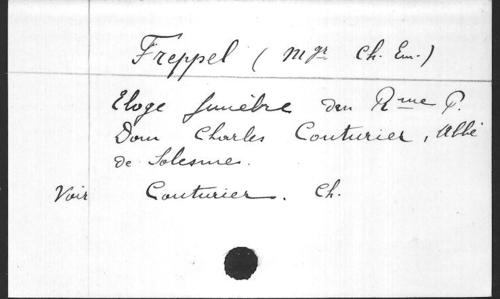 Freppel (Mgr Ch. Em.)
Eloge funèbre du Rme P.
Dom Charles Couturier, Abbé
de Solesme.
Voir Couturier. Ch.